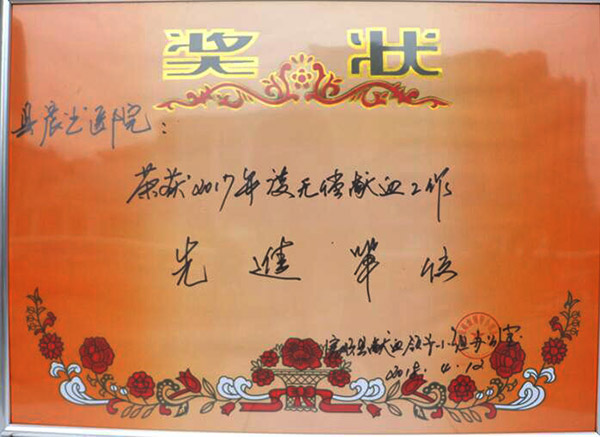 奖状
县晨光医院：
荣获2017年度无偿献血工作
先进单位
县献血领导小组办公室
2018.4.12